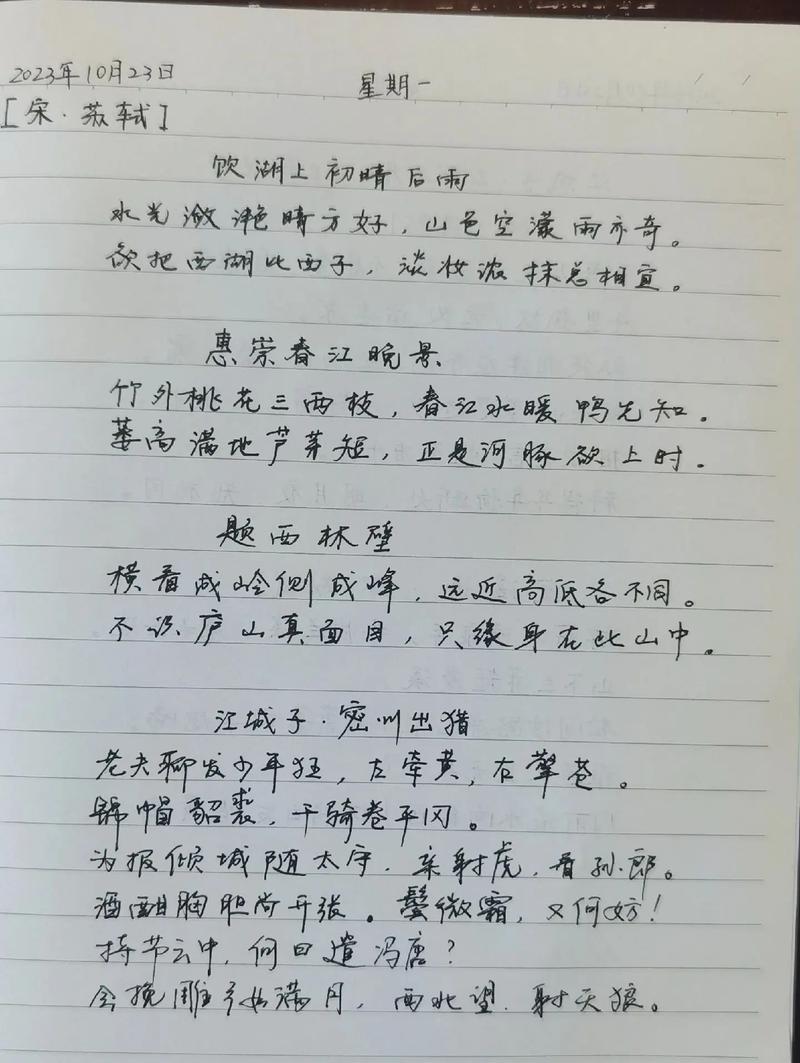 2023年10月23日 星期一
[宋·苏轼]
饮湖上初晴后雨
水光潋滟晴方好,山色空濛雨亦奇。
欲把西湖比西子,淡妆浓抹总相宜。
惠崇春江晚景
竹外桃花三两枝,春江水暖鸭先知.
蒌高满地芦芽短,正是河豚欲上时.
题西林壁
横看成岭侧成峰,远近高低各不同。
不识庐山真面目,只缘身在此山中。
江城子·密州出猎
老夫聊发少年狂,左牵黄,右擎苍。
锦帽貂裘,千骑卷平冈。
为报倾城随太守,亲射虎,看孙郎。
酒酣胸胆尚开张。鬓微霜,又何妨!
持节云中,何日遣冯唐?
会挽雕弓如满月,西北望,射天狼。